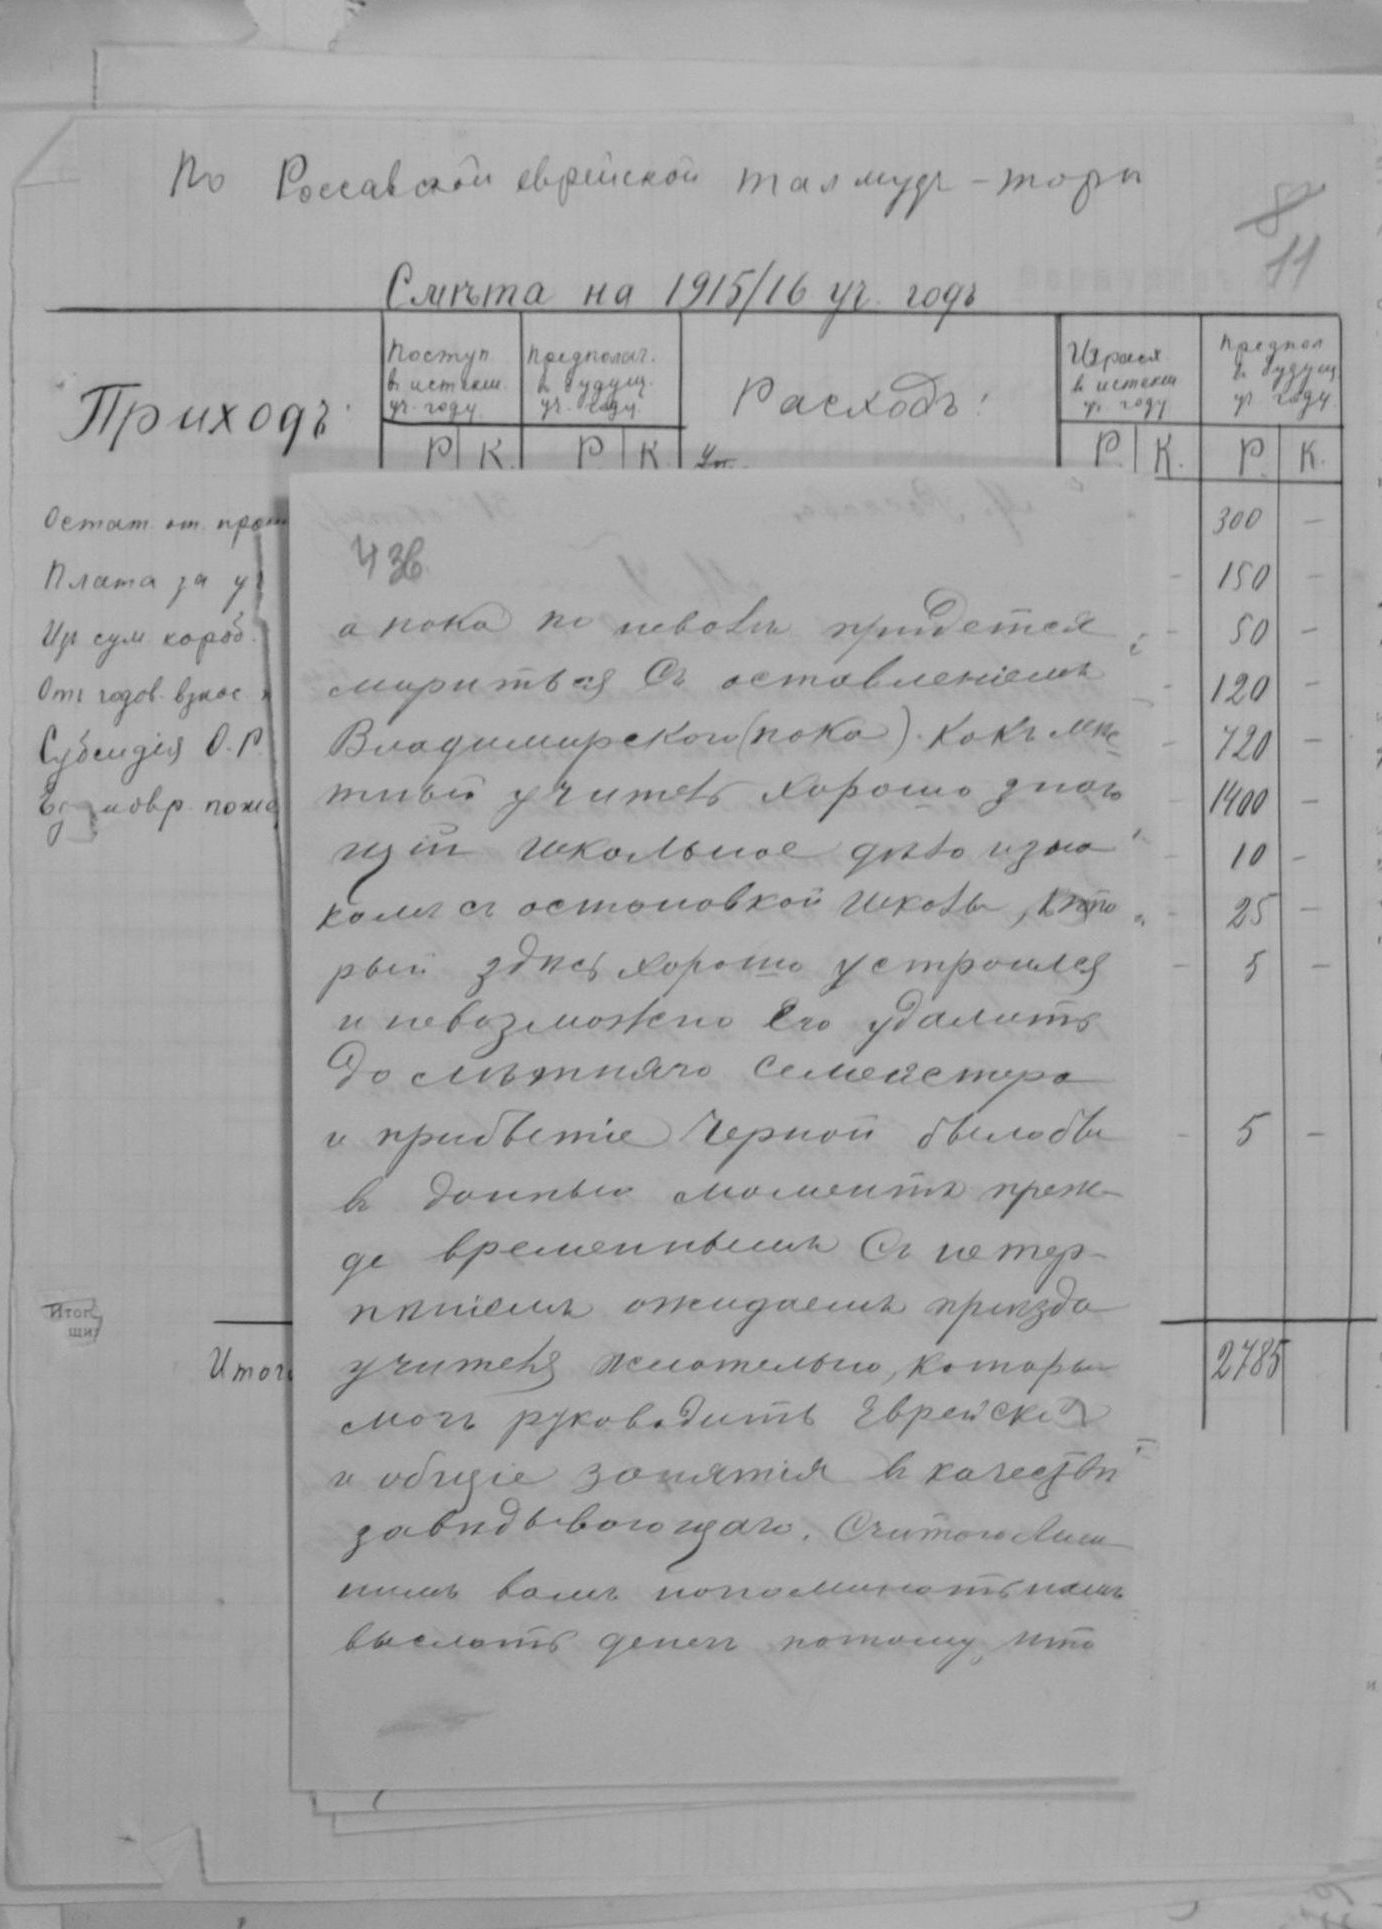 По Россавской еврейской талмудъ-торы
8
11
Смѣта на 1915/16 уч. годъ
Приходъ:
Поступ.
въ истекш.
уч. году.
Предполаг.
въ будущ.
уч. году.
Расходъ:
Израсх
въ истекш
уч. году
Предпол
въ будущ
уч. году
Р К. Р. К. Р. К. Р. К.
Остат. от.
Плата за
Из сум. короб.
Отъ годов. взнос.
Субсидія О.Р.
300 —
150 —
50 —
120 —
720 —
1400 —
10 —
25 —
5 —
5 —
Итог
2785
а пока по неволи придется
мириться съ оставленіемъ
Владимирского (пока). Какъ мнѣ
тный учитель хорошо знаю
щій школьное дѣло и зна
комъ съ остановкой школы, кото
рый здѣсь хорошо устроился
и невозможно его удалить
до лѣтняго семейстера
и прибытіе Черной было бы
въ данный моментъ преж
де временнымъ Съ нетер
пѣніемъ ожидаемъ приѣзда
учителя желательно, которы
могъ руководить Еврейскія
и общіе занятія въ качествѣ
завидывающаго. Считаю лиш
нимъ вамъ напоминать намъ
выслать денегъ потому, что